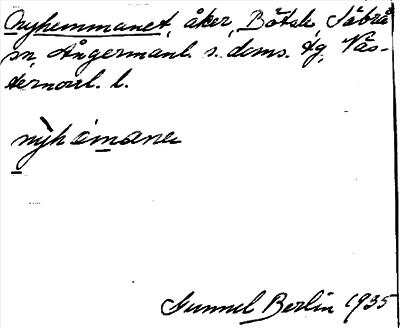 Nyhemmanet, åker, Bötsle, Säbrå
sn, Ångermanl. s. doms. dg, Väs-
ternorrl. l.
nỳhémane
Gunnel Berlin 1935